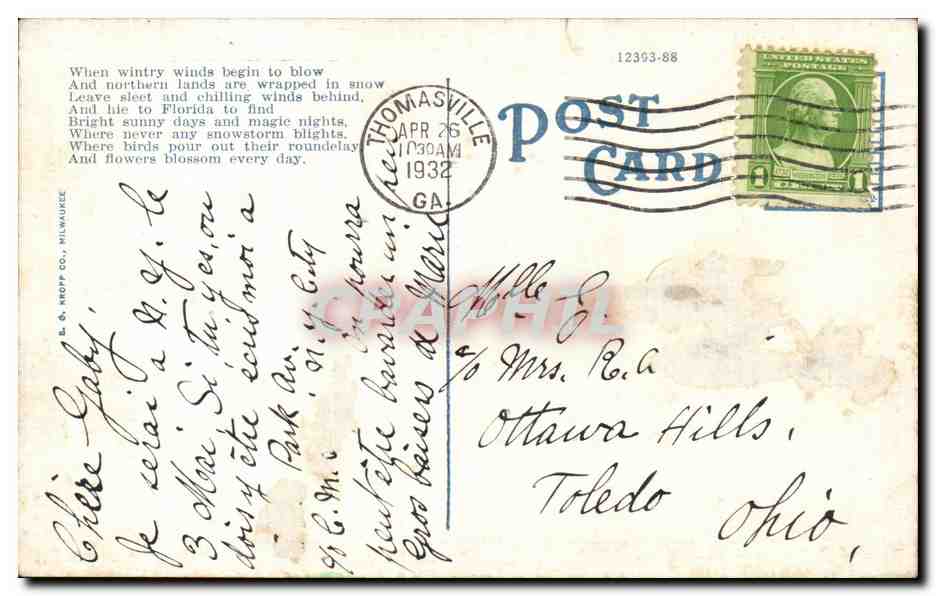 When wintry winds begin to blow
And northern lands are wrapped in snow
Leave sleet and chilling winds behind,
And hie to Florida to find
Bright sunny days and magic nights,
Where never any snowstorm blights,
Where birds pour out their roundelay
And flowers blossom every day.
E. C. KROPP CO., MILWAUKEE
12393-88
POST
CARD
THOMASVILLE
APR 26
10 30 AM
1932
GA.
UNITED STATES
POSTAGE
1
1
Chère Gaby.
Je serai a N. Y. le
3 Mai Si tu y es, ou
dois y être écris moi a
Park Av. N. Y. City
c/o C. M. C
on pourra
peut être bavarder un peu
Gros baisers de Marie
Melle G.
c/o Mrs. R. A
Ottawa Hills,
Toledo
Ohio,
CPAPHIL